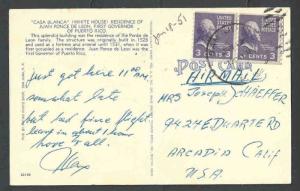 "CASA BLANCA" (WHITE HOUSE) RESIDENCE OF
JUAN PONCE DE LEON, FIRST GOVERNOR
OF PUERTO RICO.
This splendid building was residence of the Ponce de
Leon family. The structure was originally built in 1523
and used as a fortress until 1531, when it was
first occupied as a residence. Juan Ponce de Leon was the
First Governor of Puerto Rico.
Jan-18-51
UNITED STATES POSTAGE
3 CENTS 3
UNITED STATES POSTAGE
3 CENTS 3
POST CARD
AIRMAIL
just got here 11:00 AM.
somewhat late
but had fine flight
hang in about 1 hour
love to all.
Max
MRS JOSEPH SCHAEFFER
9424 E DUARTE RD
ARCADIA CALIF
U.S.A.